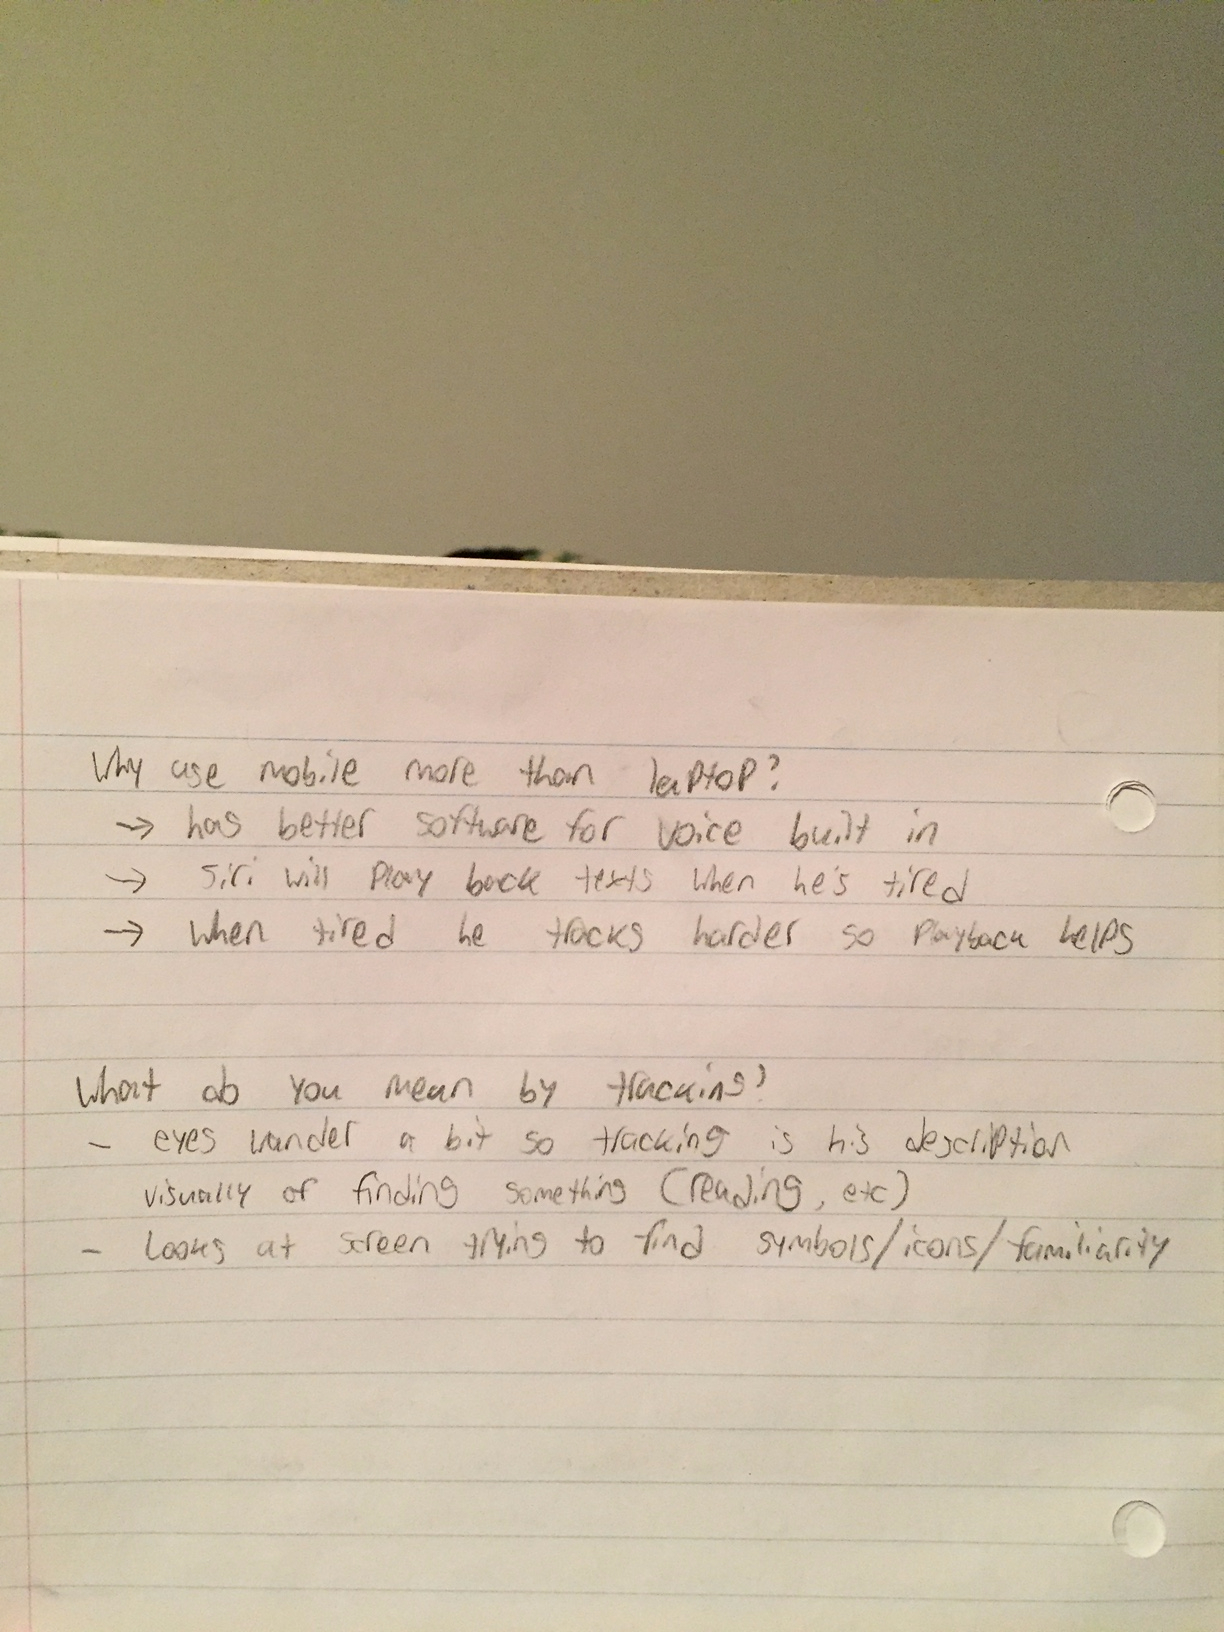 Why use mobile more than laptop?
→ has better software for voice built in
→ Siri will play back texts when he's tired
→ when tired he tracks harder so playback helps
What do you mean by tracking?
- eyes wander a bit so tracking is his description
visually of finding something (reading, etc)
- Looks at screen trying to find symbols/icons/familiarity